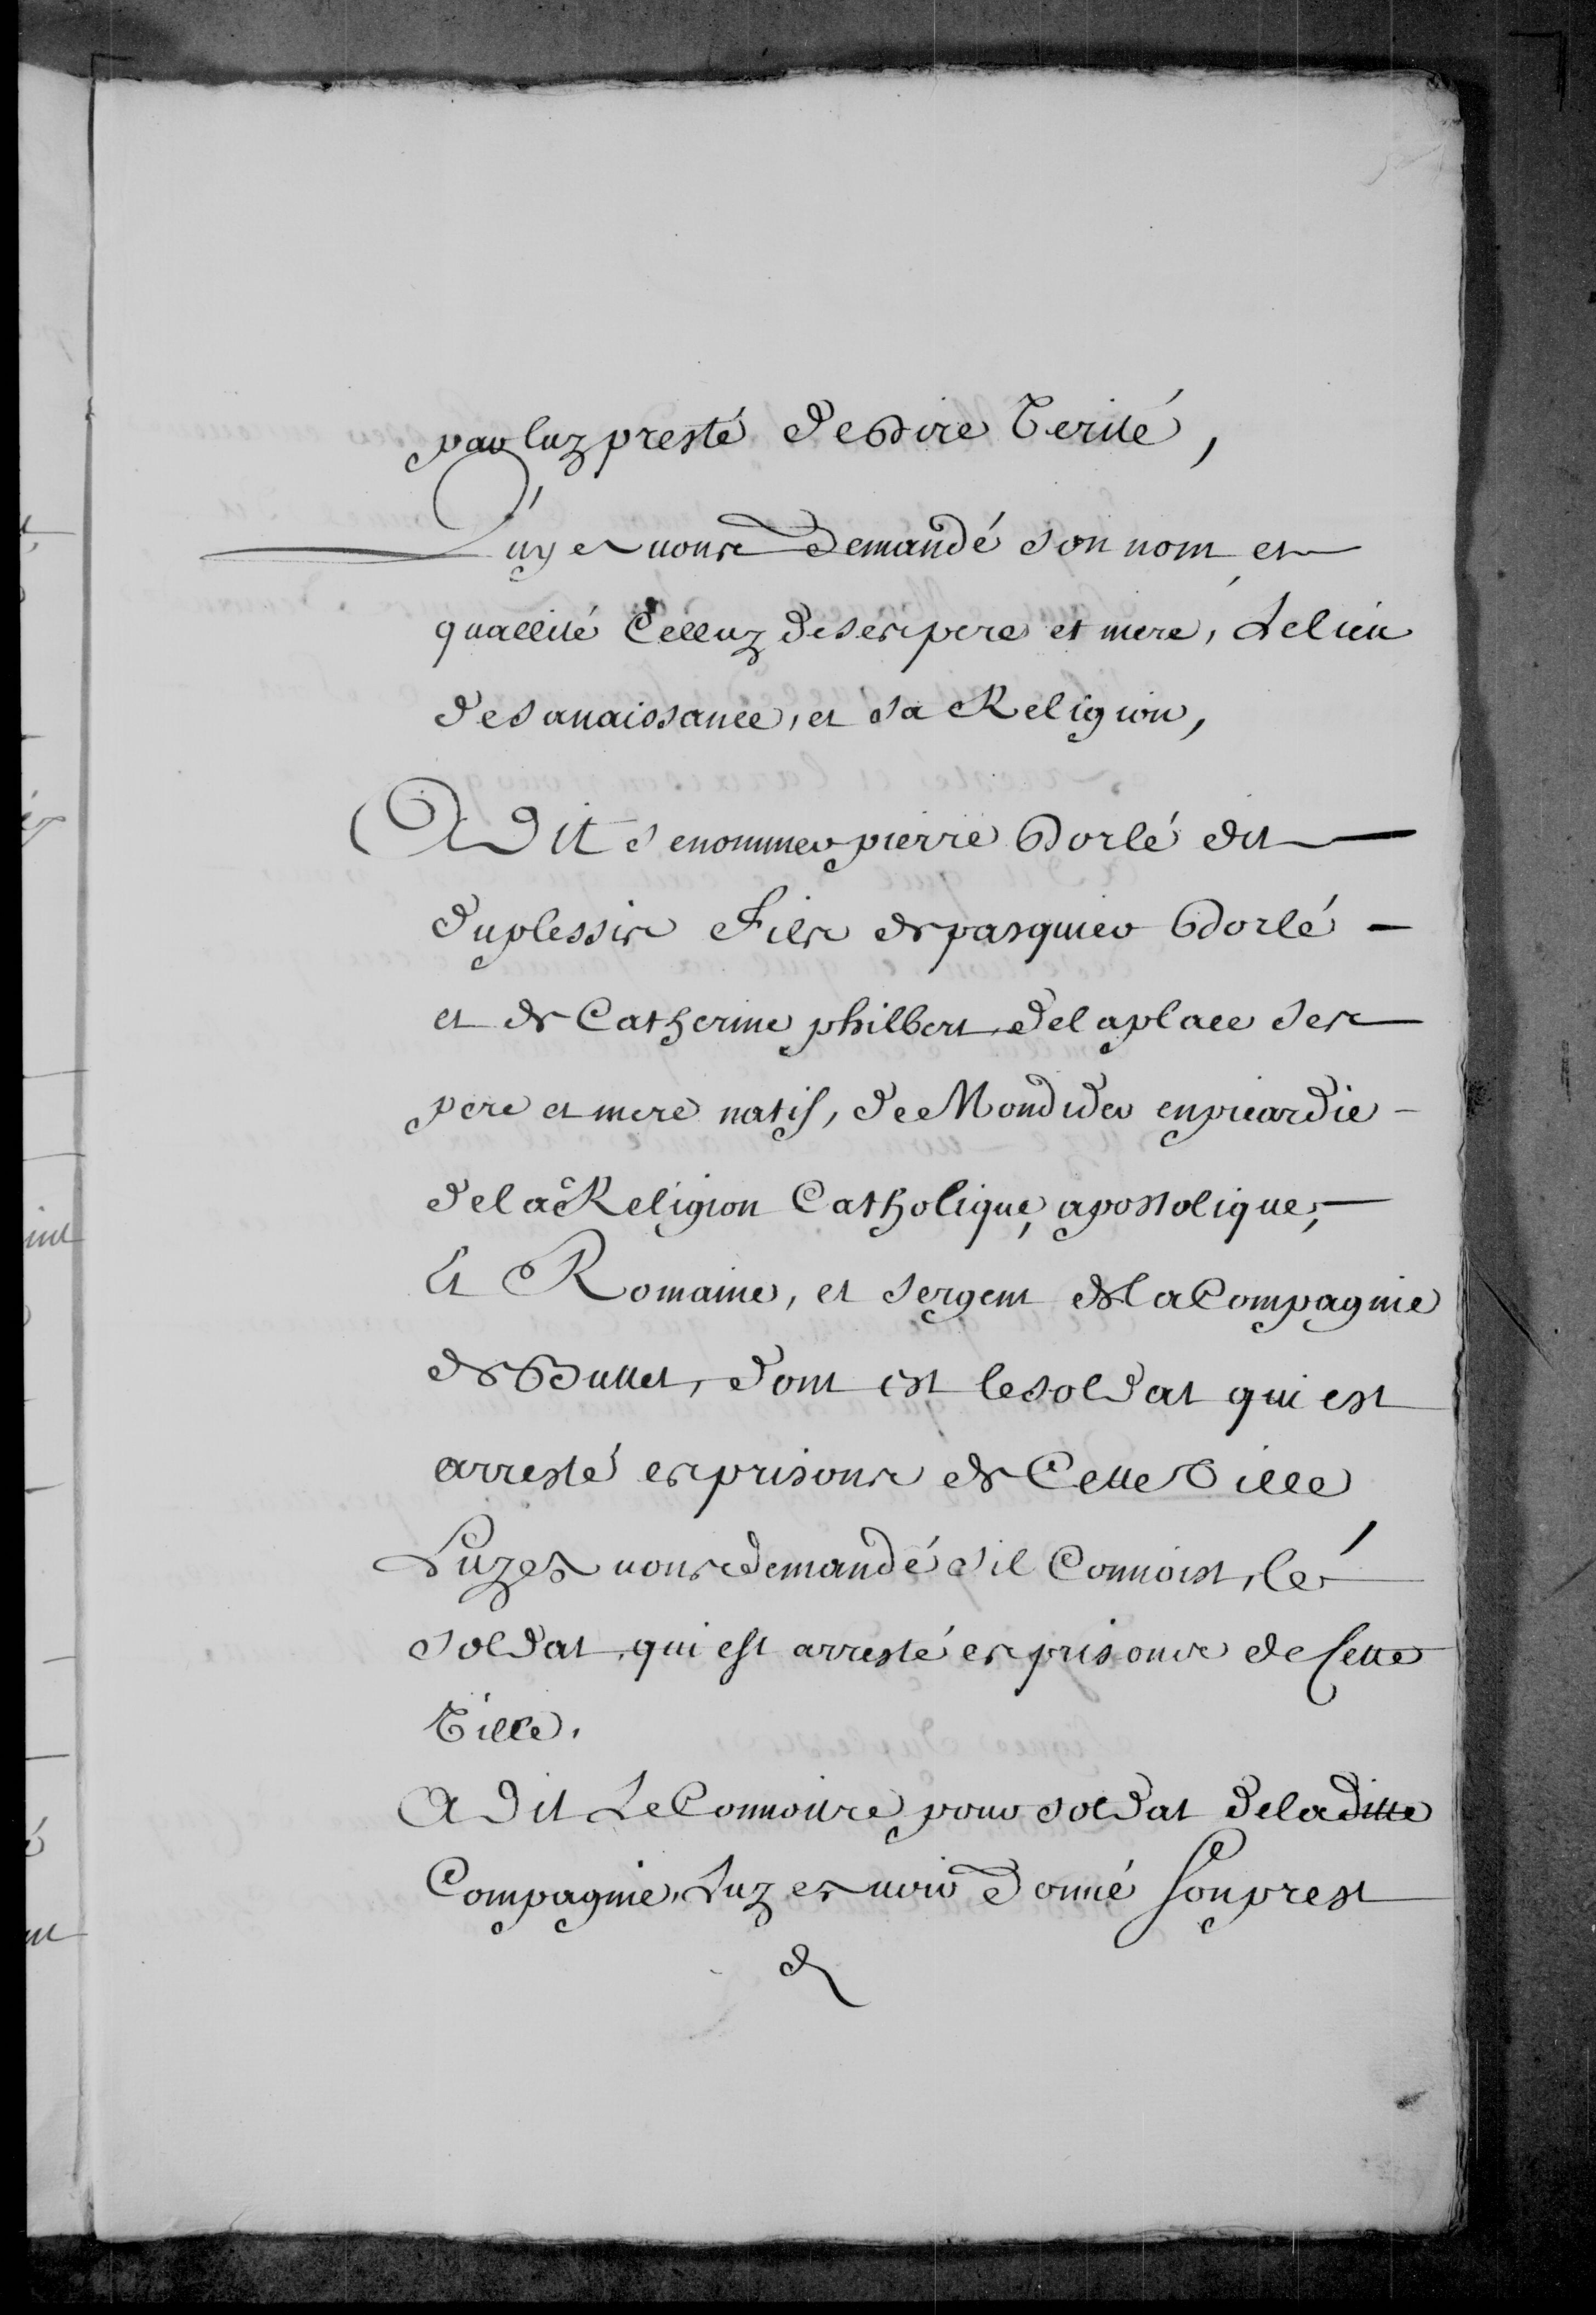 par luy presté de dire Verité,
Luy avons demandé son nom et
quallité Celluy de ses pere et mere, Le lieu
de sa naissance, et sa Religion,
A Dit se nommer pierre Dorlé dit
duplessis Fils de pasquier Dorlé
et de Catherine philbert de la place ses
pere et mere natif, de Mondider en picardie
de la Religion Catholique, apostolique,
Et Romaine, et sergent de la Compagnie
de Buttet, dont est le soldat qui est
arresté es prisons de Cette Ville
Luy avons demandé s'il Connoist, le
soldat qui est arresté es prisons de Cette
Ville.
A Dit Le Connoitre pour soldat de laditte
Compagnie, Luy avoir donné Son prest